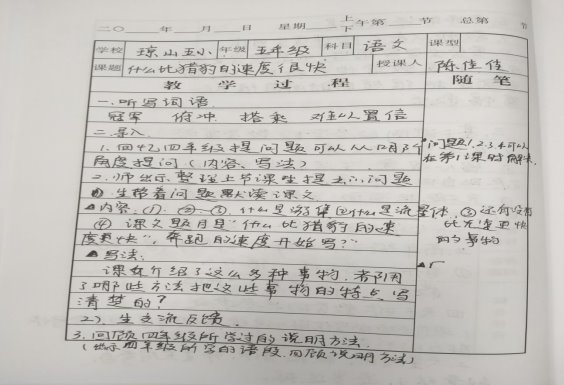 二〇 年 月 日 星期 上下午第 节 总第 节
学校 琼山五小 年级 五年级 科目 语文 课型
课题 什么比猎豹的速度很快 授课人 陈佳佳
教学过程 随笔
一.听写词语
冠军 俯冲 搭乘 难以置信
二.导入
1.回忆四年级提问题可以从哪几个
角度提问(内容、写法)
问题1.2.3.4可以
在第1课时解决.
2.师出示整理上节课生提出的问题
生带着问题默读课文
▲内容: ① ② ③ 什么是游隼 什么是流星体. ⑤还有没有
比光速更快
的事物
④课文题目是“什么比猎豹的速
度更快” 奔跑的速度开始写?”
▲写法:
课文介绍了这么多种事物,者用
了哪些方法把这些事物的特点写
清楚的?
2).生交流反馈.
3.回顾四年级所学过的说明方法.
(出示四年级所写的语段,回顾说明方法)